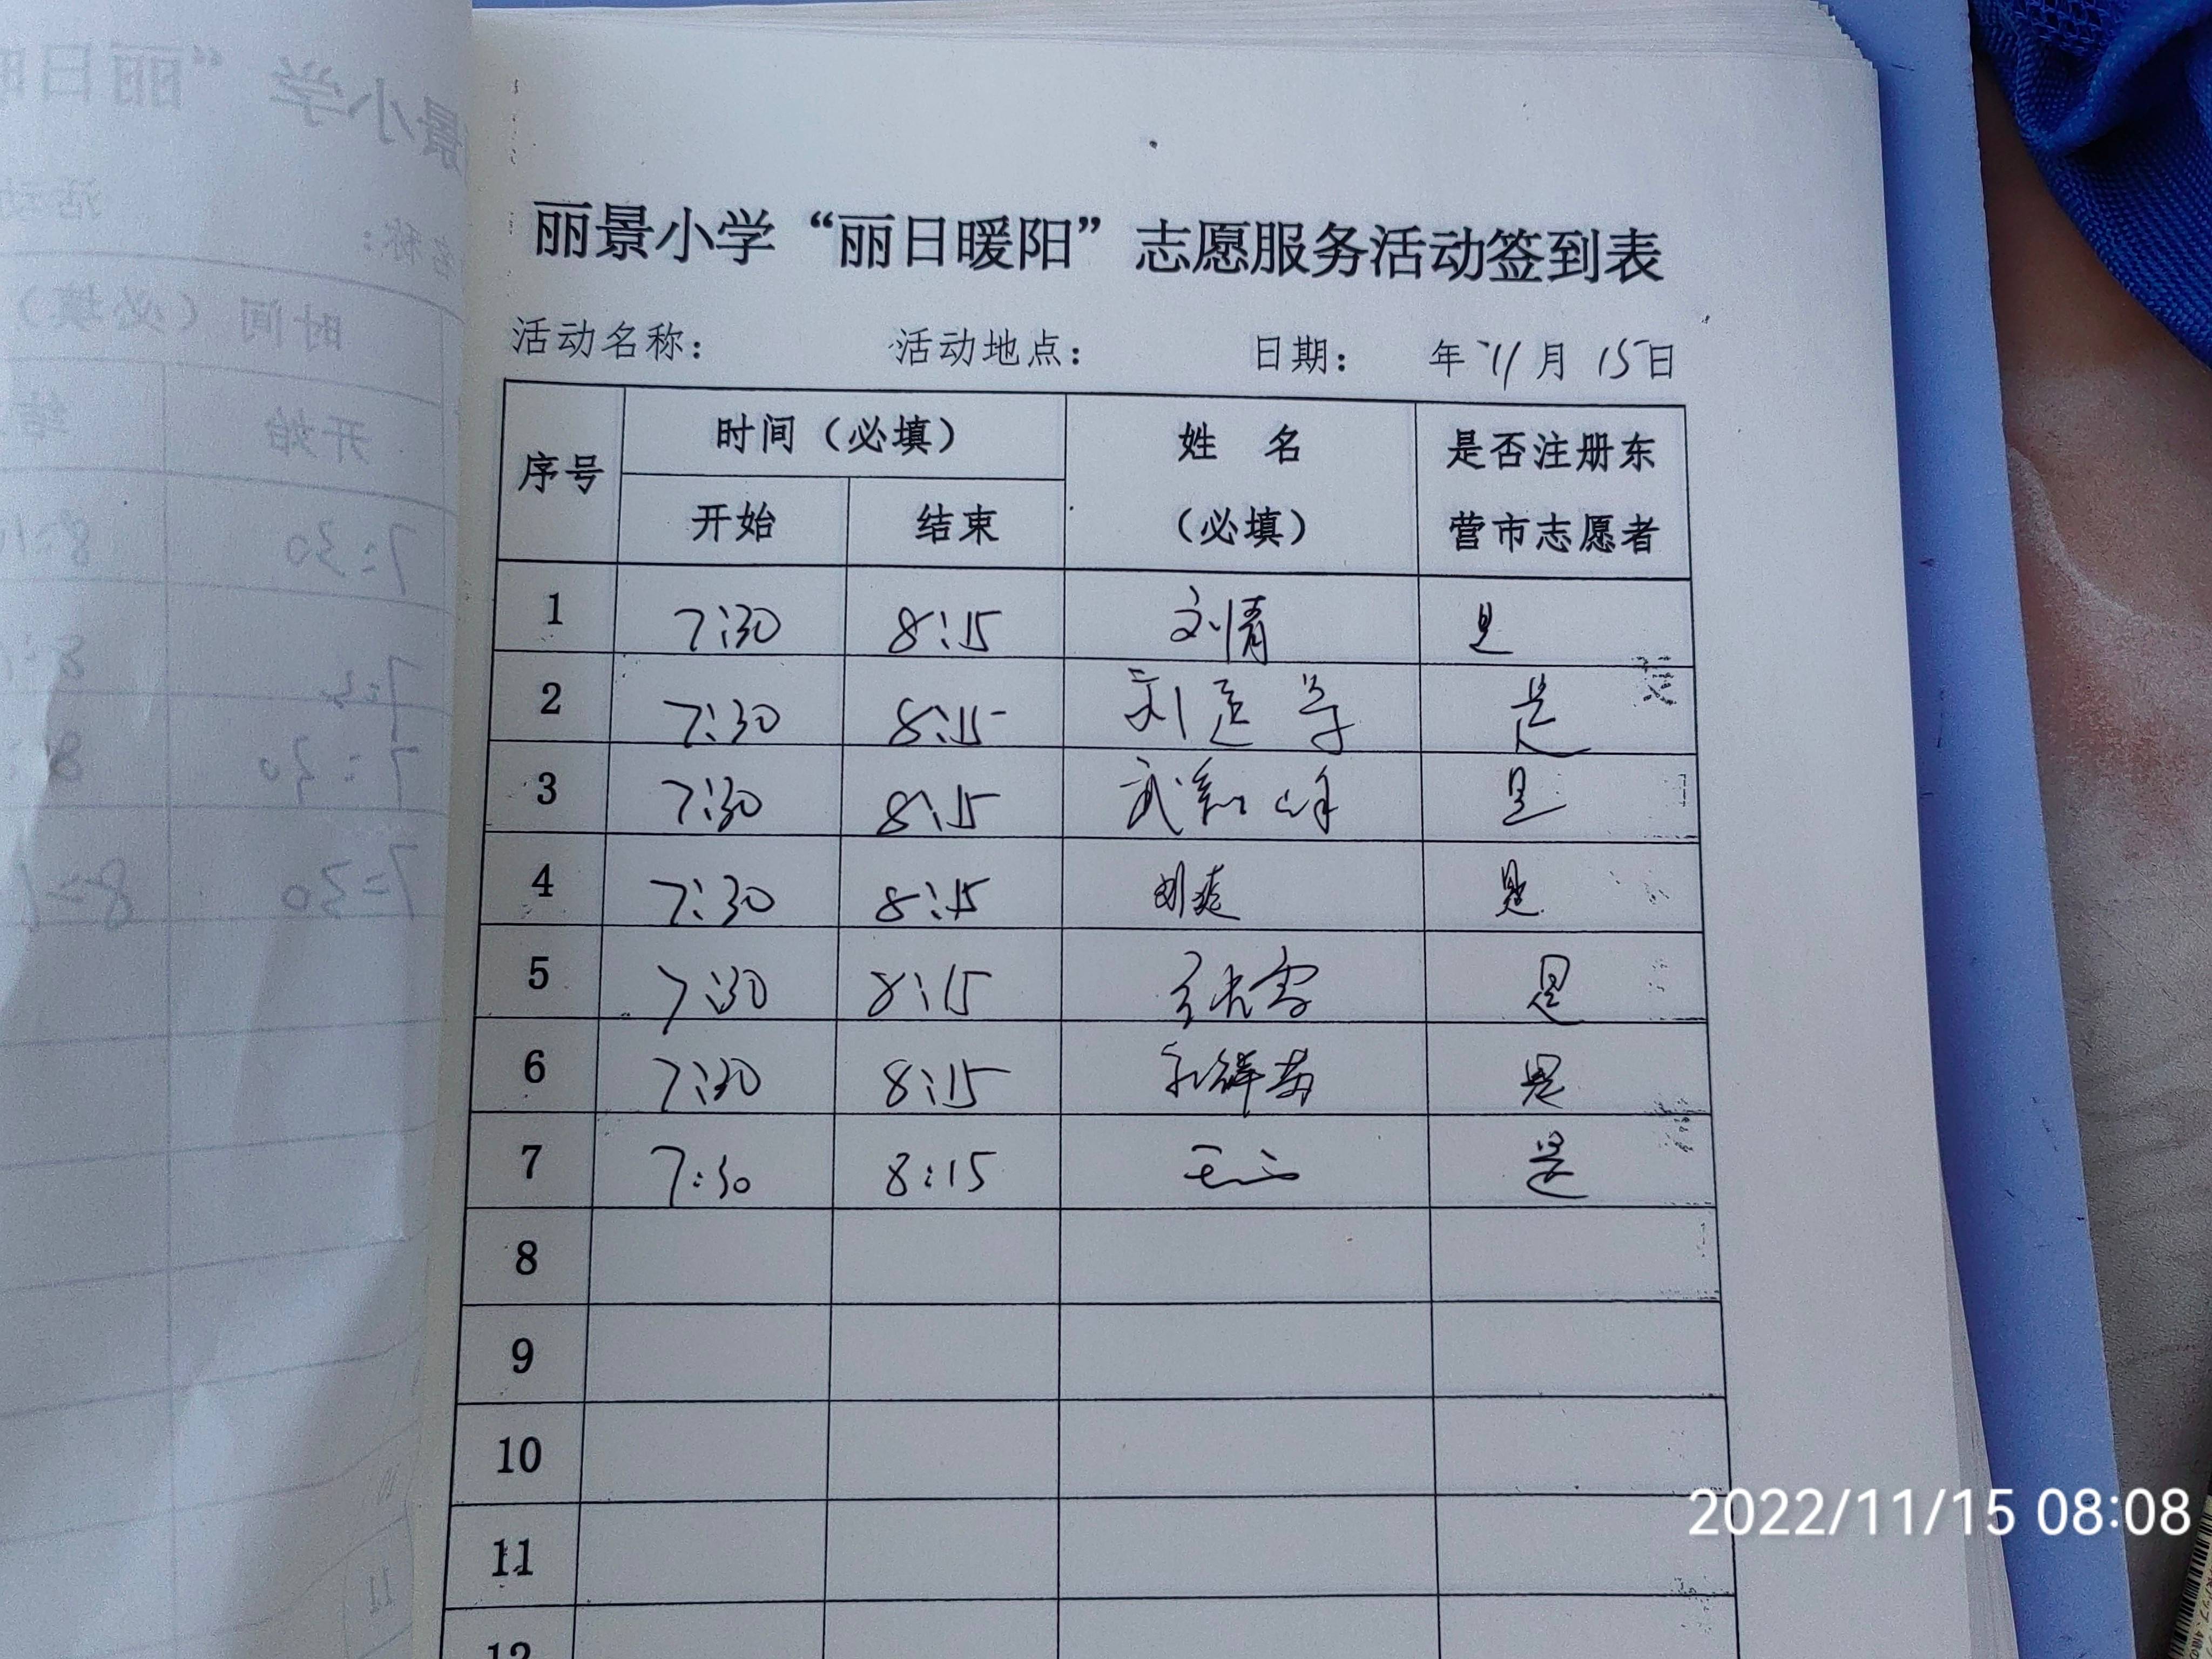 丽景小学“丽日暖阳”志愿服务活动签到表
活动名称： 活动地点： 日期： 年 11月 15日
序号 时间（必填） 姓 名（必填） 是否注册东营市志愿者
开始 结束
1 7:30 8:15 刘倩 是
2 7:30 8:15 刘 是
3 7:30 8:15 武 峰 是
4 7:30 8:15 刘 是
5 7:30 8:15 是
6 7:30 8:15 是
7 7:30 8:15 王 是
8
9
10
11
12
2022/11/15 08:08